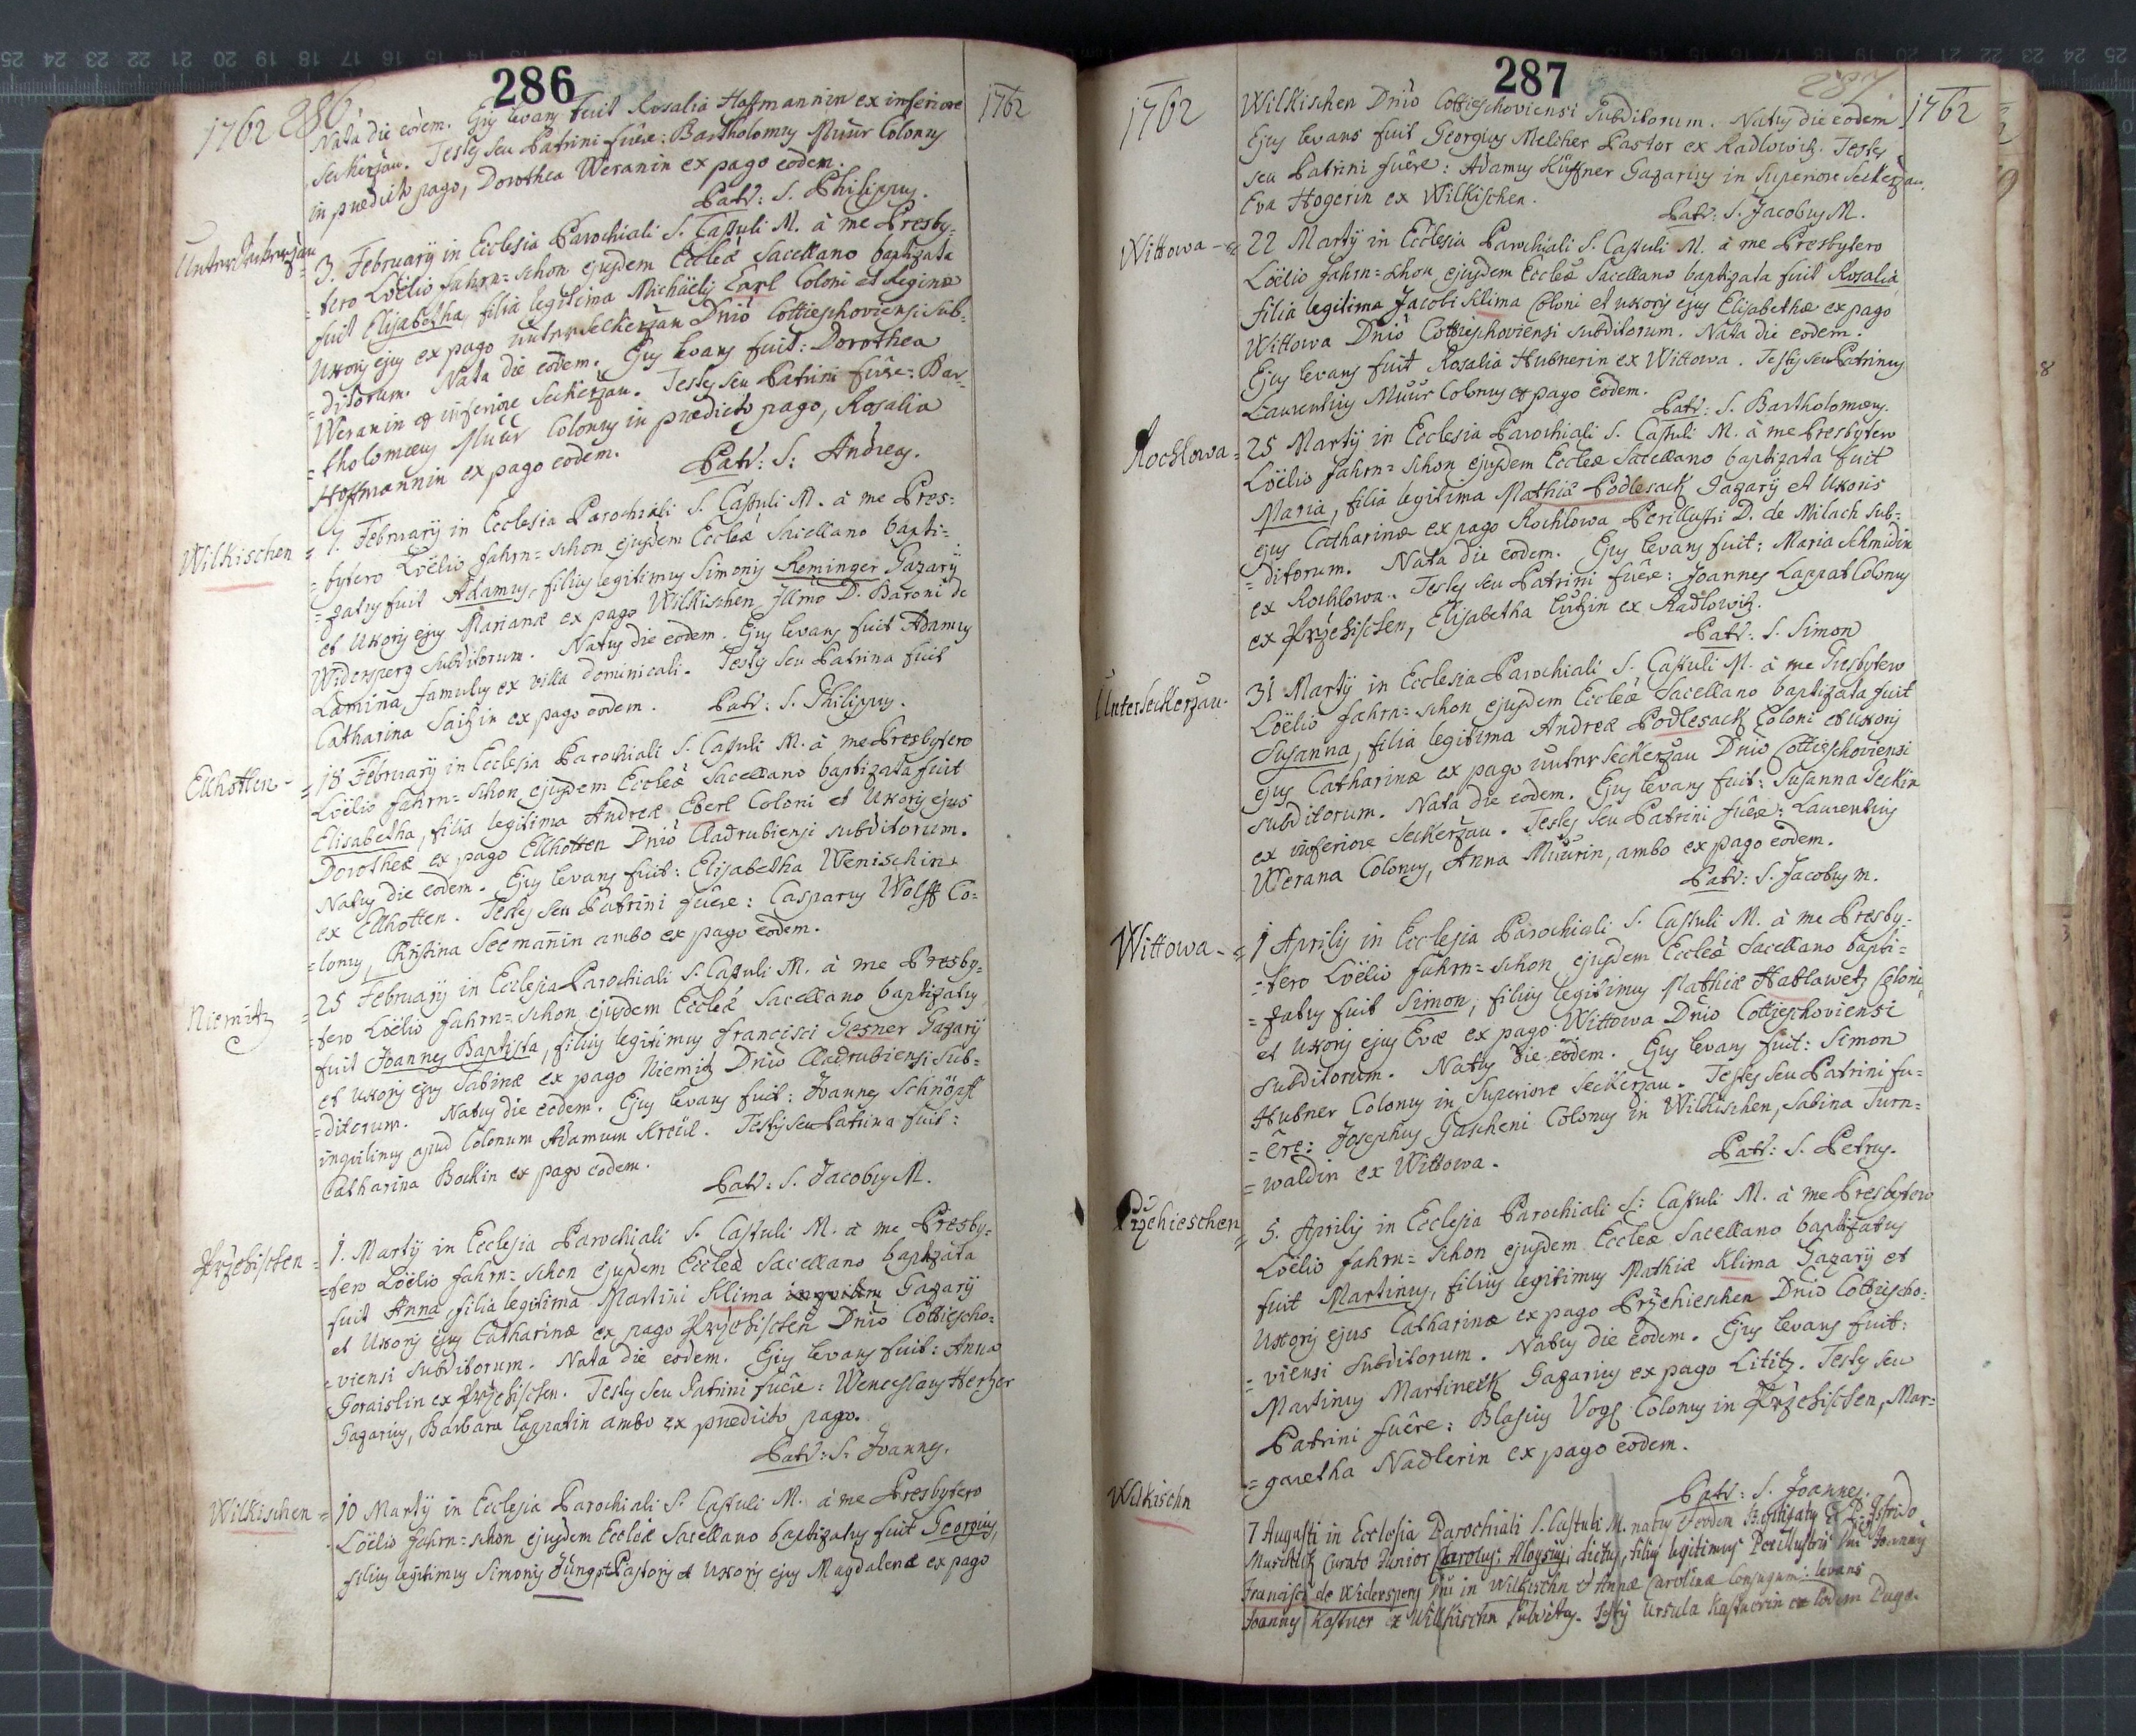 286
1762 286 1762
Nata die eodem. Ejus levans fuit Rosalia Hoffmannin ex inferiore
Seckerzau. Testes seu Patrini fuêre: Bartholomeus Muur Colonus
in praedicto pago, Dorothea Weranin ex pago eodem.
Patr: S. Philippus.
Unter Seckerzau
3. February in Ecclesia Parochiali S. Castuli M. à me Presby-
-tero Loëlio Fahrn=schon ejusdem Eccleâ Sacellano baptizata
fuit Elisabetha, filia legitima Michaëlis Earl Coloni et Reginæ
Uxoris ejus ex pago unter Seckerzau Dniô Cottieschoviensi sub-
=ditorum. Nata die eodem. Ejus levans fuit: Dorothea
Weranin ex inferiore Seckerzau. Testes seu Patrini fuêre: Bar-
=tholomæus Muur Colonus in praedicto pago, Rosalia
Hoffmannin ex pago eodem.
Patr: S: Andreas.
Wilkischen = 7. February in Ecclesia Parochiali S. Castuli M. à me Pres=
=bytero Loëlio Fahrn=schon ejusdem Eccleâ Sacellano bapti=
=zatus fuit Adamus, filius legitimus Simonis Reminger Gazarÿ
et Uxoris ejus Marianæ ex pago Wilkischen Illmo D. Baroni de
Widersperg subditorum. Natus die eodem. Ejus levans fuit Adamus
Lamina, famulus ex villa dominicali. Testis seu Patrina fuit
Catharina Saitzin ex pago eodem.
Patr: S. Philippus.
Ellhotten = 18 February in Ecclesia Parochiali S. Castuli M. à me Presbytero
Loëlio Fahrn=schon ejusdem Eccleâ Sacellano baptizata fuit
Elisabetha, filia legitima Andreæ Eberl Coloni et Uxoris ejus
Dorotheæ ex pago Ellhotten Dniô Cladrubiensi subditorum.
Natus die eodem. Ejus levans fuit: Elisabetha Wenischin
ex Ellhotten. Testes seu Patrini fuêre: Casparus Wolff Co=
=lonus, Christina Seemañin ambo ex pago eodem.
Niemitz = 25 February in Ecclesia Parochiali S. Castuli M. à me Presby=
=tero Loëlio Fahrn=schon ejusdem Eccleâ Sacellano baptizatus
fuit Joannes Baptista, filius legitimus Francisci Gesner Gazarÿ
et Uxoris ejus Sabinæ ex pago Niemitz Dniô Cladrubiensi sub=
=ditorum. Natus die eodem. Ejus levans fuit: Joannes Schnöpff
inquilinus apud Colonum Adamum Kreül. Testis seu Patrina fuit:
Catharina Bockin ex pago eodem.
Patr: S. Jacobus M.
Przehischen = 1. Martÿ in Ecclesia Parochiali S. Castuli M. à me Presby=
=tero Loëlio Fahrn=schon ejusdem Eccleâ Sacellano baptizata
fuit Anna, filia legitima Martini Klima inquilini Gazarÿ
et Uxoris ejus Catharinæ ex pago Przehischen Dniô Cottiescho=
=viensi subditorum. Nata die eodem. Ejus levans fuit: Anna
Goraistin ex Przehischen. Testes seu Patrini fuêre: Wenceslaus Herzer
Gazarius, Barbara Lappatin ambo ex praedicto pago.
Patr: S. Joannes.
Wilkischen = 10 Martÿ in Ecclesia Parochiali S. Castuli M. à me Presbytero
Loëlio Fahrn=schon ejusdem Eccleâ Sacellano baptizatus fuit Georgius,
filius legitimus Simonis Jüngst Pastoris et Uxoris ejus Magdalenæ ex pago
287
1762 287 1762
Wilkischen Dniô Cottieschoviensi Subditorum. Natus die eodem
Ejus levans fuit Georgius Melcher Pastor ex Radlowitz. Testes
seu Patrini fuêre: Adamus Küffner Gazarius in Superiore Seckerzau,
Eva Hogerin ex Wilkischen.
Patr: S. Jacobus M.
Wittowa = 22 Martÿ in Ecclesia Parochiali S. Castuli M. à me Presbytero
Loëlio Fahrn=schon ejusdem Eccleâ Sacellano baptizata fuit Rosalia
filia legitima Jacobi Klima Coloni et uxoris ejus Elisabethæ ex pago
Wittowa Dniô Cottieschoviensi subditorum. Nata die eodem.
Ejus levans fuit Rosalia Hubnerin ex Wittowa. Testis seu Patrinus
Laurentius Muur Colonus ex pago eodem.
Patr: S. Bartholomæus.
Rochlowa = 25 Martÿ in Ecclesia Parochiali S. Castuli M. à me Presbytero
Loëlio Fahrn=schon ejusdem Eccleâ Sacellano baptizata fuit
Maria, filia legitima Mathiæ Podlesack Gazarÿ et Uxoris
ejus Catharinæ ex pago Rochlowa Perillustri D. de Milach sub-
=ditorum. Nata die eodem. Ejus levans fuit: Maria Schmidin
ex Rochlowa. Testes seu Patrini fuêre: Joannes Lappat Colonus
ex Przehischen, Elisabetha Lutzin ex Radlowitz.
Patr: S. Simon
Unterseckerzau = 31 Martÿ in Ecclesia Parochiali S. Castuli M. à me Presbytero
Loëlio Fahrn=schon ejusdem Eccleâ Sacellano baptizata fuit
Susanna, filia legitima Andreæ Podlesack Coloni et Uxoris
ejus Catharinæ ex pago unter Seckerzau Dniô Cottieschoviensi
subditorum. Nata die eodem. Ejus levans fuit: Susanna Peckin
ex inferiore Seckerzau. Testes seu Patrini fuêre: Laurentius
Werana Colonus, Anna Muurin, ambo ex pago eodem.
Patr: S. Jacobus m.
Wittowa = 1 Aprilis in Ecclesia Parochiali S. Castuli M. à me Presby-
=tero Loëlio Fahrn=schon ejusdem Eccleâ Sacellano bapti=
=zatus fuit Simon, filius legitimus Mathiæ Hatlawetz Coloni
et Uxoris ejus Evæ ex pago Wittowa Dniô Cottieschoviensi
subditorum. Natus die eodem. Ejus levans fuit: Simon
Hubner Colonus in Superiore Seckerzau. Testes seu Patrini fu=
=êre: Josephus Gascheni Colonus in Wilkischen, Sabina Turn=
=waldin ex Wittowa.
Patr: S. Petrus.
Przehieschen = 5. Aprilis in Ecclesia Parochiali S: Castuli M. à me Presbytero
Loëlio Fahrn=schon ejusdem Eccleâ Sacellano baptizatus
fuit Martinus, filius legitimus Mathiæ Klima Gazarÿ et
Uxoris ejus Catharinæ ex pago Przehieschen Dniô Cottiescho=
=viensi subditorum. Natus die eodem. Ejus levans fuit:
Martinus Martineck Gazarius ex pago Lititz. Testes seu
Patrini fuêre: Blasius Vogl Colonus in Przehischen, Mar=
=garetha Nadlerin ex pago eodem.
Patr: S. Joannes.
Wilkischn
7 Augusti in Ecclesia Parochiali S. Castuli M. natus et eodem Baptizatus
Curato Junior Carolus Aloysius dictus, filius legitimus Perillustris Dni Joannis
Francisci de Widersperg Dni in Wilkischn & Annæ Carolinæ Conjugum: levans
Joannes Kastner ex Wilkischn Subditus. Testis Ursula Kastnerin ex eodem Pago.